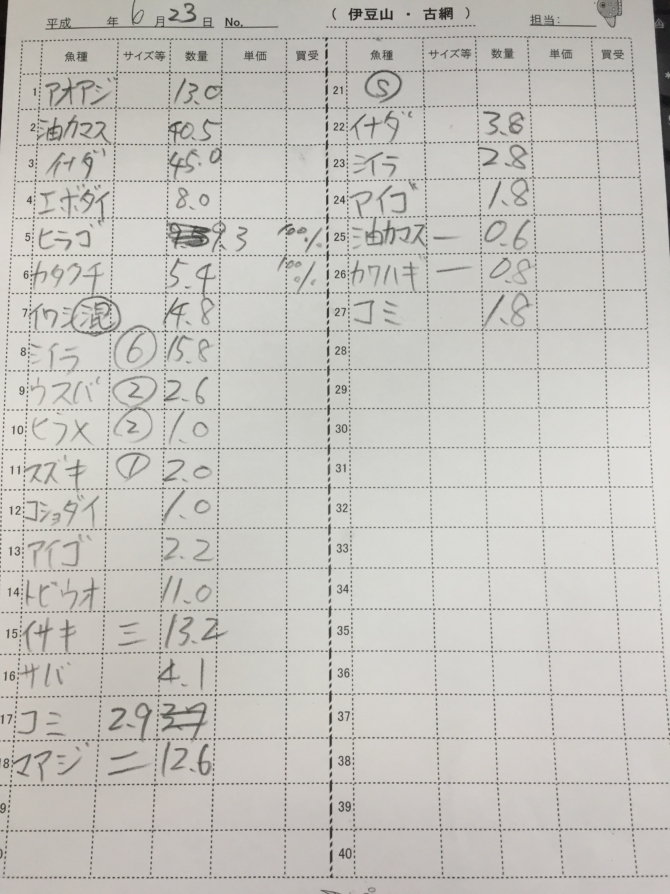 平成 年 6月 23日 No. ( 伊豆山 ・ 古網 ) 担当:
魚種 サイズ等 数量 単価 買受
1 アオアジ 13.0
2 油カマス 40.5
3 イナダ 45.0
4 エボダイ 8.0
5 ヒラゴ 9.3 100%
6 カタクチ 5.4 100%
7 イワシ混 14.8
8 シイラ ⑥ 15.8
9 ウスバ ② 2.6
10 ヒラメ ② 1.0
11 スズキ ① 2.0
12 コショダイ 1.0
13 アイゴ 2.2
14 トビウオ 11.0
15 イサキ 三 13.2
16 サバ 4.1
17 コミ 2.9 3.7
8 マアジ 二 12.6
9
魚種 サイズ等 数量 単価 買受
21 Ⓢ
22 イナダ 3.8
23 シイラ 2.8
24 アイゴ 1.8
25 油カマス 一 0.6
26 カワハギ 一 0.8
27 コミ 1.8
28
29
30
31
32
33
34
35
36
37
38
39
40